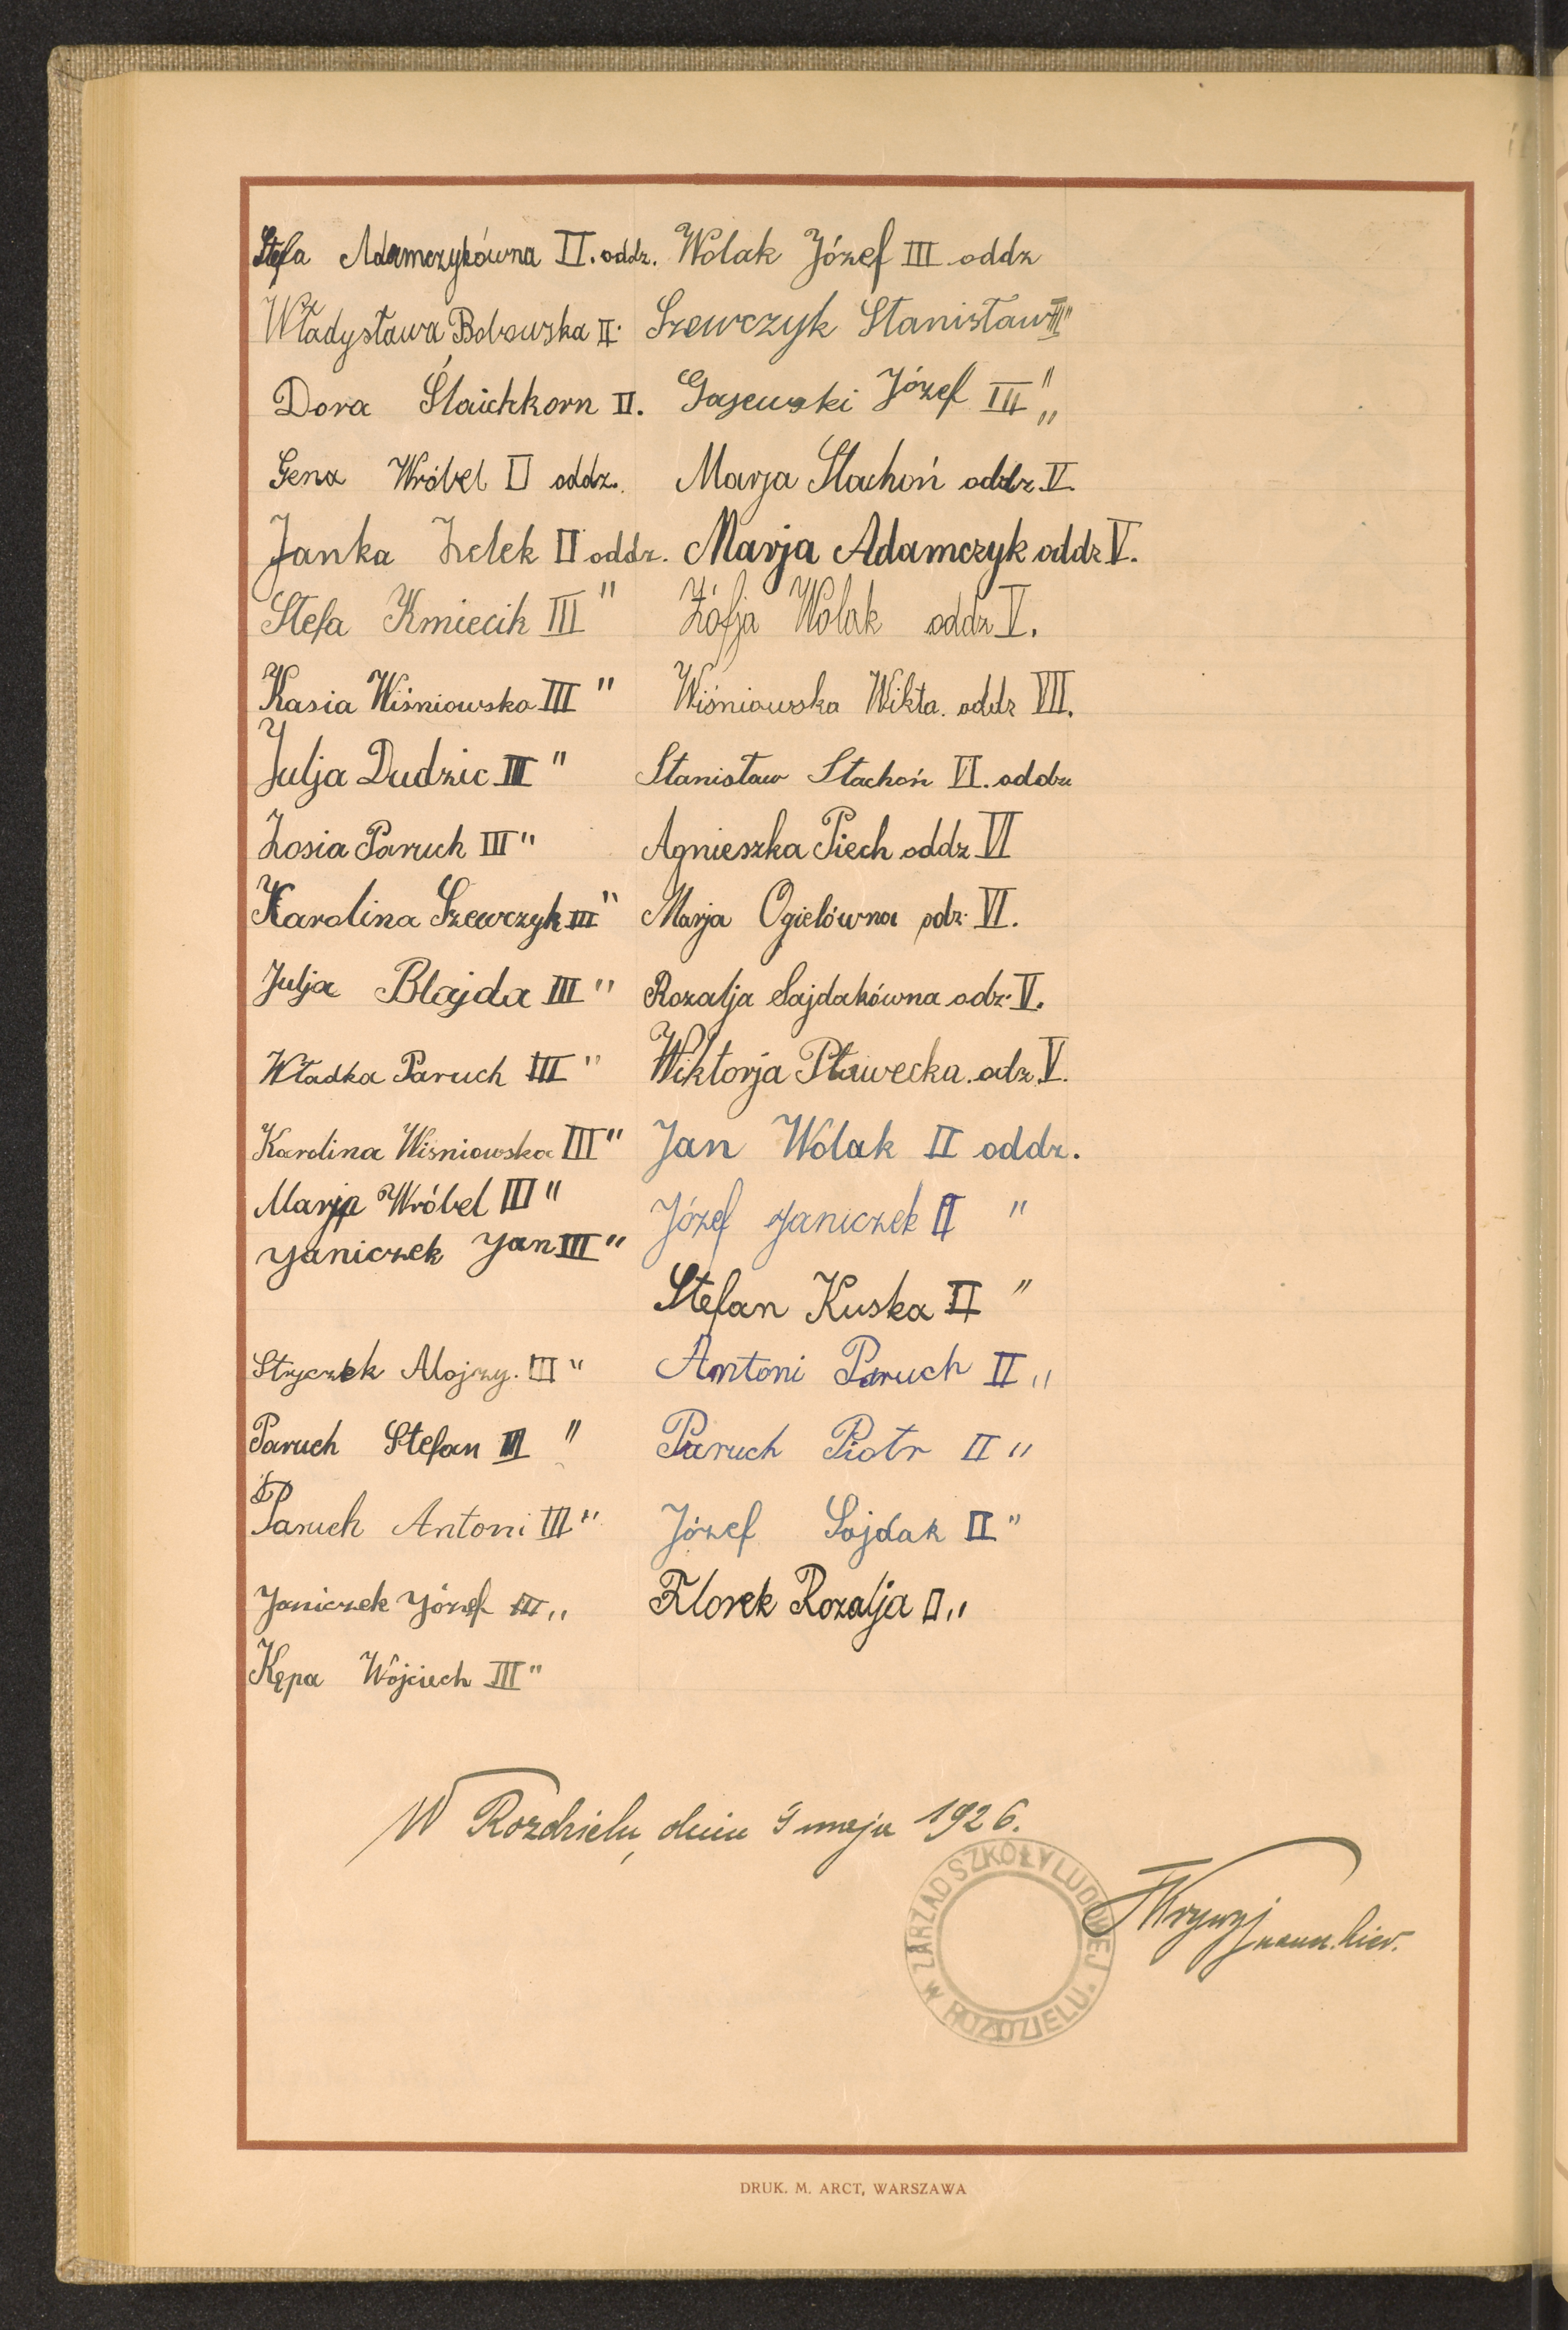 Stefa Adamczykówna II. oddz.
Władysława Bobowska II.
Dora Ślaichkorn II.
Gena Wróbel II oddz.
Janka Zelek II oddz.
Stefa Kmiecik III "
Kasia Wiśniowska III "
Julja Dudzic III "
Zosia Paruch III "
Karolina Szewczyk III "
Julja Blajda III "
Władka Paruch III "
Karolina Wiśniowska III "
Marja Wróbel III "
Janiczek Jan III "
Stryczek Alojzy. III "
Paruch Stefan III "
Paruch Antoni III "
Janiczek Józef III "
Kępa Wójciech III "
Wolak Józef III oddz
Szewczyk Stanisław III "
Gajewski Józef III "
Marja Stachoń oddz V.
Marja Adamczyk oddz V.
Zófja Wolak oddz V.
Wiśniowska Wikta. oddz VII.
Stanisław Stachoń VI. oddz
Agnieszka Piech oddz VI
Marja Ogielówna odz. VI.
Rozalja Sajdakówna odz. V.
Wiktorja Pławecka. odz. V.
Jan Wolak II oddz.
Józef Janiczek II "
Stefan Kuska II "
Antoni Paruch II "
Paruch Piotr II "
Józef Sajdak II "
Florek Rozalja II "
W Rozdzielu, dnia 9 maja 1926.
ZARZĄD SZKOŁY LUDOWEJ W ROZDZIELU
kier.
DRUK. M. ARCT, WARSZAWA